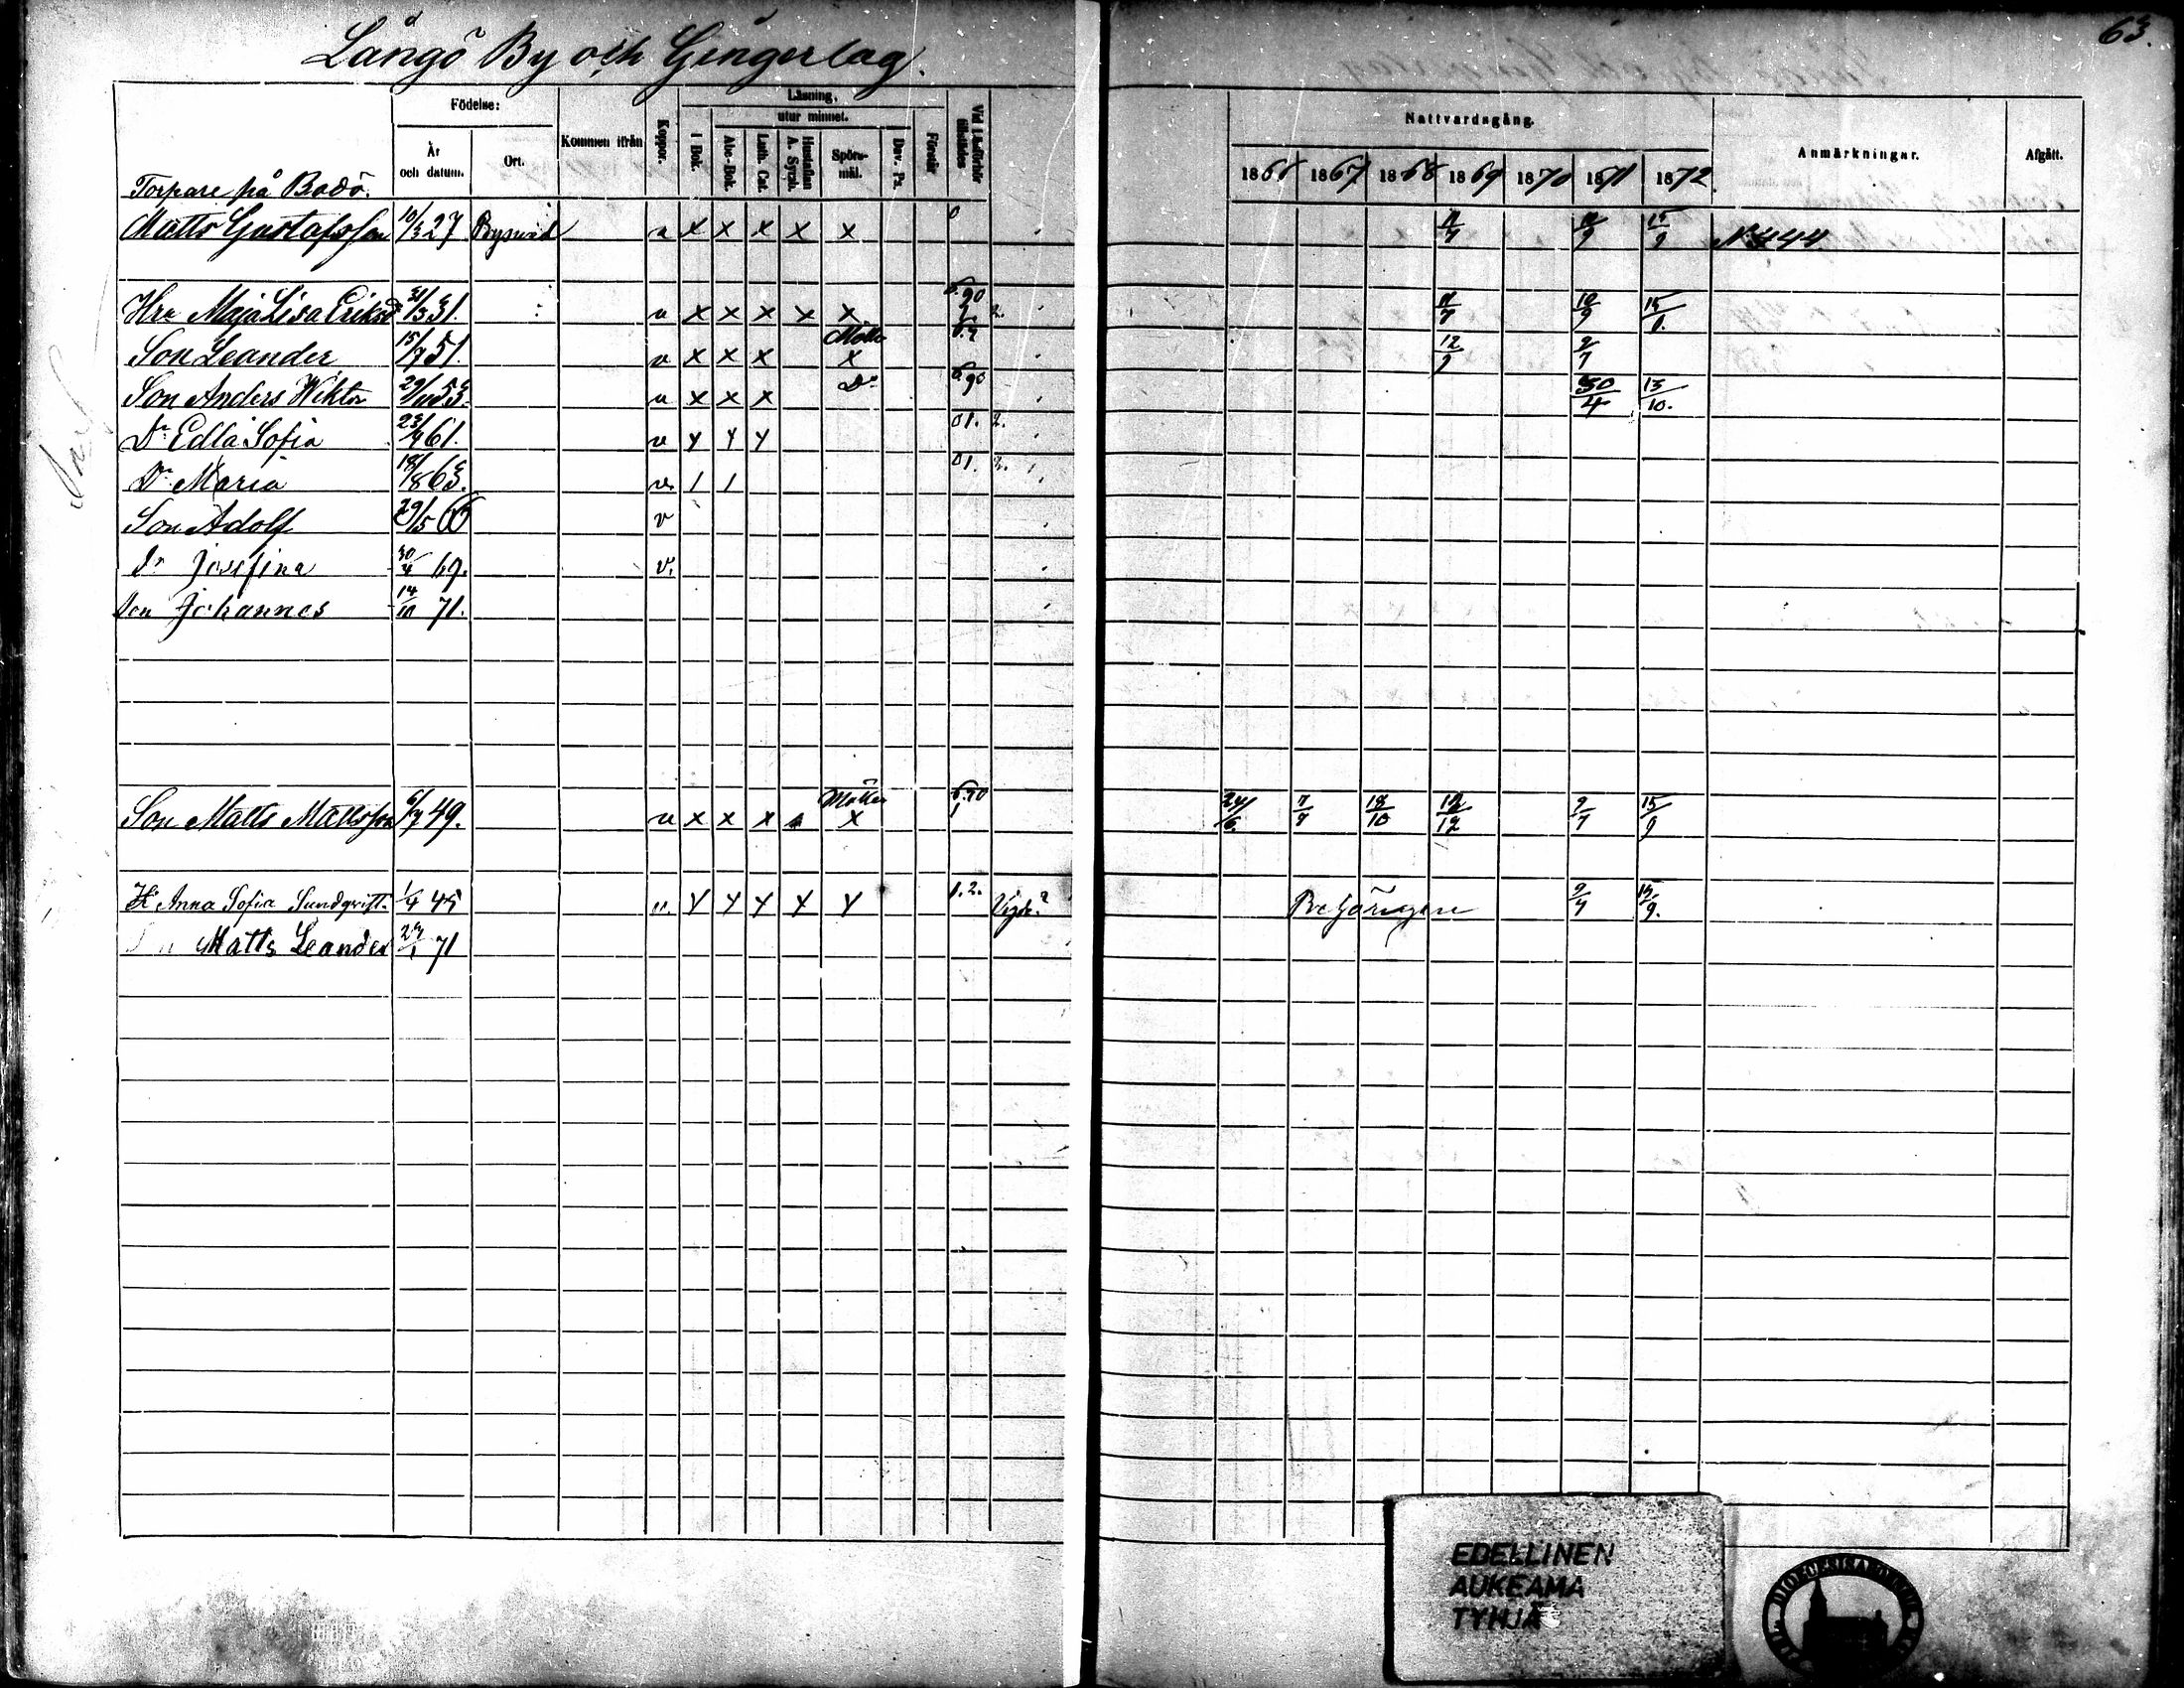 Långö By och Gingerlag.
63.
Födelse:
År och datum.
Ort.
Kommen ifrån
Koppor.
Läsning.
utur minnet.
I Bok.
Abc-Bok.
Luth. Cat.
Hustaflan A. Symb.
Spörs-mål.
Dav. Ps.
Förstår
Vid Läsförhör tillstädes
Nattvardsgång.
1866 1867 1868 1869 1870 1871 1872
Anmärkningar.
Afgått.
Torpare på Bodö.
Matts Gustafsson 10/3 27 v x x x x x 0 11/7 15/9 N 444
Hu Maja Lisa Eriksd 31/3 31. v x x x x x 11/7 10/9 15/
Son Leander 15/7 51. v x x x x 12/ 9/7
Son Anders Wiktor 29/ 53. v x x x Do 30/4 13/10.
Dr Edla Sofia 23/9 61. v Y Y Y 01. 2.
Dr Maria 18/8 63. v. / / 01. 2.
Son Adolf 29/5 66 v
Dr Josefina 30/4 69. v.
Son Johannes 14/10 71.
Son Matts Mattsson 6/7 49. v x x x x 24/6. 7/7 18/10 12/12 9/7 15/9
Hu Anna Sofia Sundqvist. 1/4 45 v. Y Y Y Y Y 1.2. 9/7 15/9.
Matts Leander 29/1 71
EDELLINEN
AUKEAMA
TYHJÄ